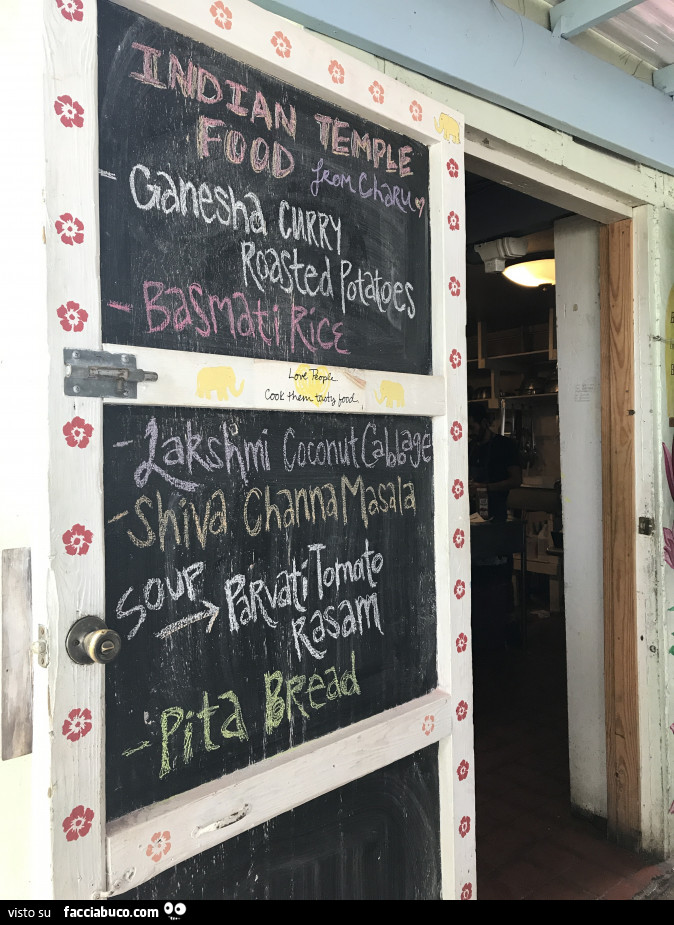 INDIAN TEMPLE
FOOD from Charu
- Ganesha CURRY
Roasted Potatoes
- Basmati Rice
Love People
Cook them tasty food
- Lakshmi Coconut Cabbage
- Shiva Channa Masala
SOUP → Parvati Tomato
Rasam
- Pita Bread
visto su facciabuco.com